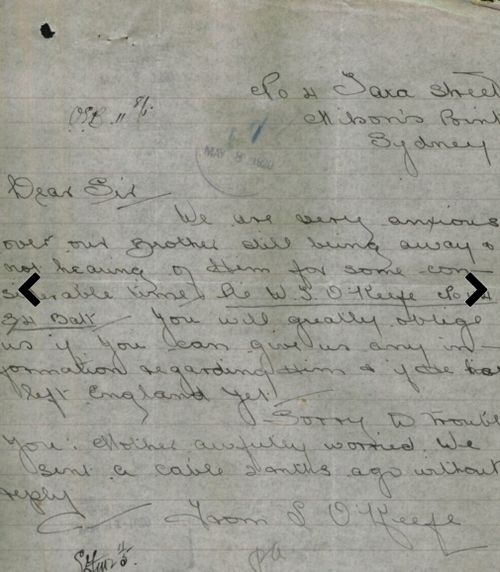 No 4 Tara Street
Milson's Point
Sydney
MAY 8 1920
Dear Sir
We are very anxious
over our Brother still being away &
not hearing of Him for some con-
siderable time. He W. J. O'Keefe No 4
34 Batt You will greatly oblige
us if You can give us any in-
formation regarding Him & if He has
left England yet.
Sorry to Trouble
You. Mother awfully worried We
sent a cable 2 mths ago without
reply
From S O'Keefe